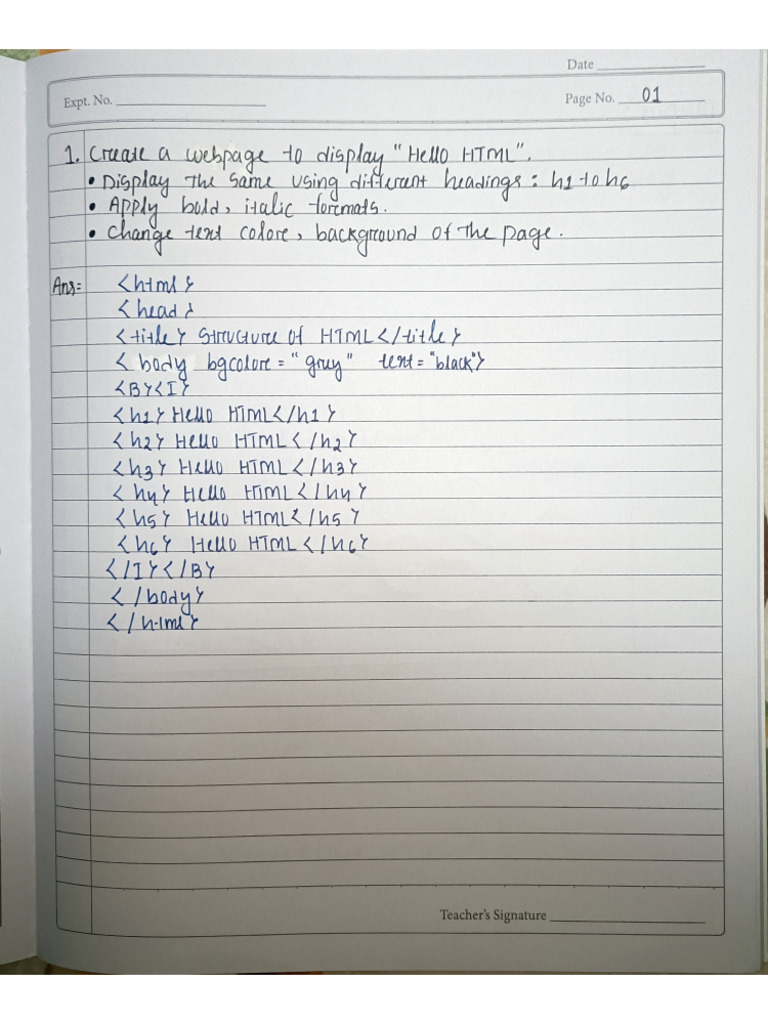 Date
Expt. No.
Page No. 01
1. Create a webpage to display "Hello HTML".
• Display the same using different headings: h1 to h6
• Apply bold, italic formats.
• Change text color, background of the page.
Ans:- <html>
<head>
<title> Structure of HTML</title>
<body bgcolor="grey" text="black">
<B><I>
<h1> Hello HTML</h1>
<h2> Hello HTML</h2>
<h3> Hello HTML</h3>
<h4> Hello HTML</h4>
<h5> Hello HTML</h5>
<h6> Hello HTML</h6>
</I></B>
</body>
</html>
Teacher's Signature